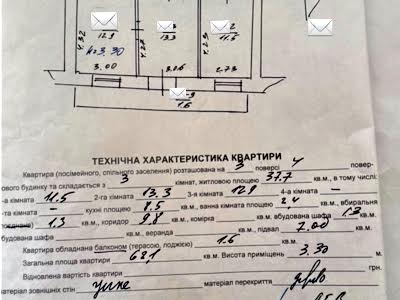 12.9 13.3 11.5
4.32 4.23 4.23
h=3.30
3.00 3.06 2.73
1.6
ТЕХНІЧНА ХАРАКТЕРИСТИКА КВАРТИРИ
Квартира (посімейного, спільного заселення) розташована на 3 поверсі 4 повер-
ового будинку та складається з 3 кімнат, житловою площею 37.7 кв.м, в тому числі:
кімната 11.5 2-га кімната 13.3 3-я кімната 12.9 4-а кімната –
-та кімната – кухні площею 8.5 кв.м, ванна кімната площею 2.4 кв.м, вбиральня
1.3 кв.м, коридор 9.8 кв.м, комірка кв.м, вбудована шафа 1.3 кв.м
будована шафа кв.м, веранда кв.м, підвал 7.00 кв.м.
Квартира обладнана балконом (терасою, лоджією) 1.6 кв.м
Загальна площа квартири 62.1 кв.м. Висота приміщень 3.30 м
Відновлена вартість квартири грн.
матеріал зовнішніх стін матеріал перекриття